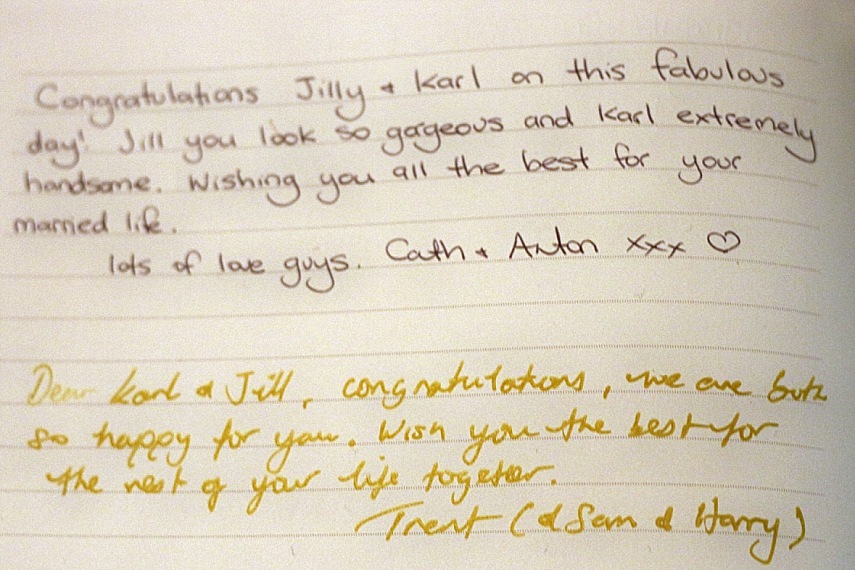 Congratulations Jilly + Karl on this fabulous
day! Jill you look so gorgeous and Karl extremely
handsome. Wishing you all the best for your
married life.
lots of love guys. Cath + Anton xxx ♡
Dear Karl & Jill, congratulations, we are both
so happy for you. Wish you the best for
the rest of your life together.
Trent (& Sam & Harry)